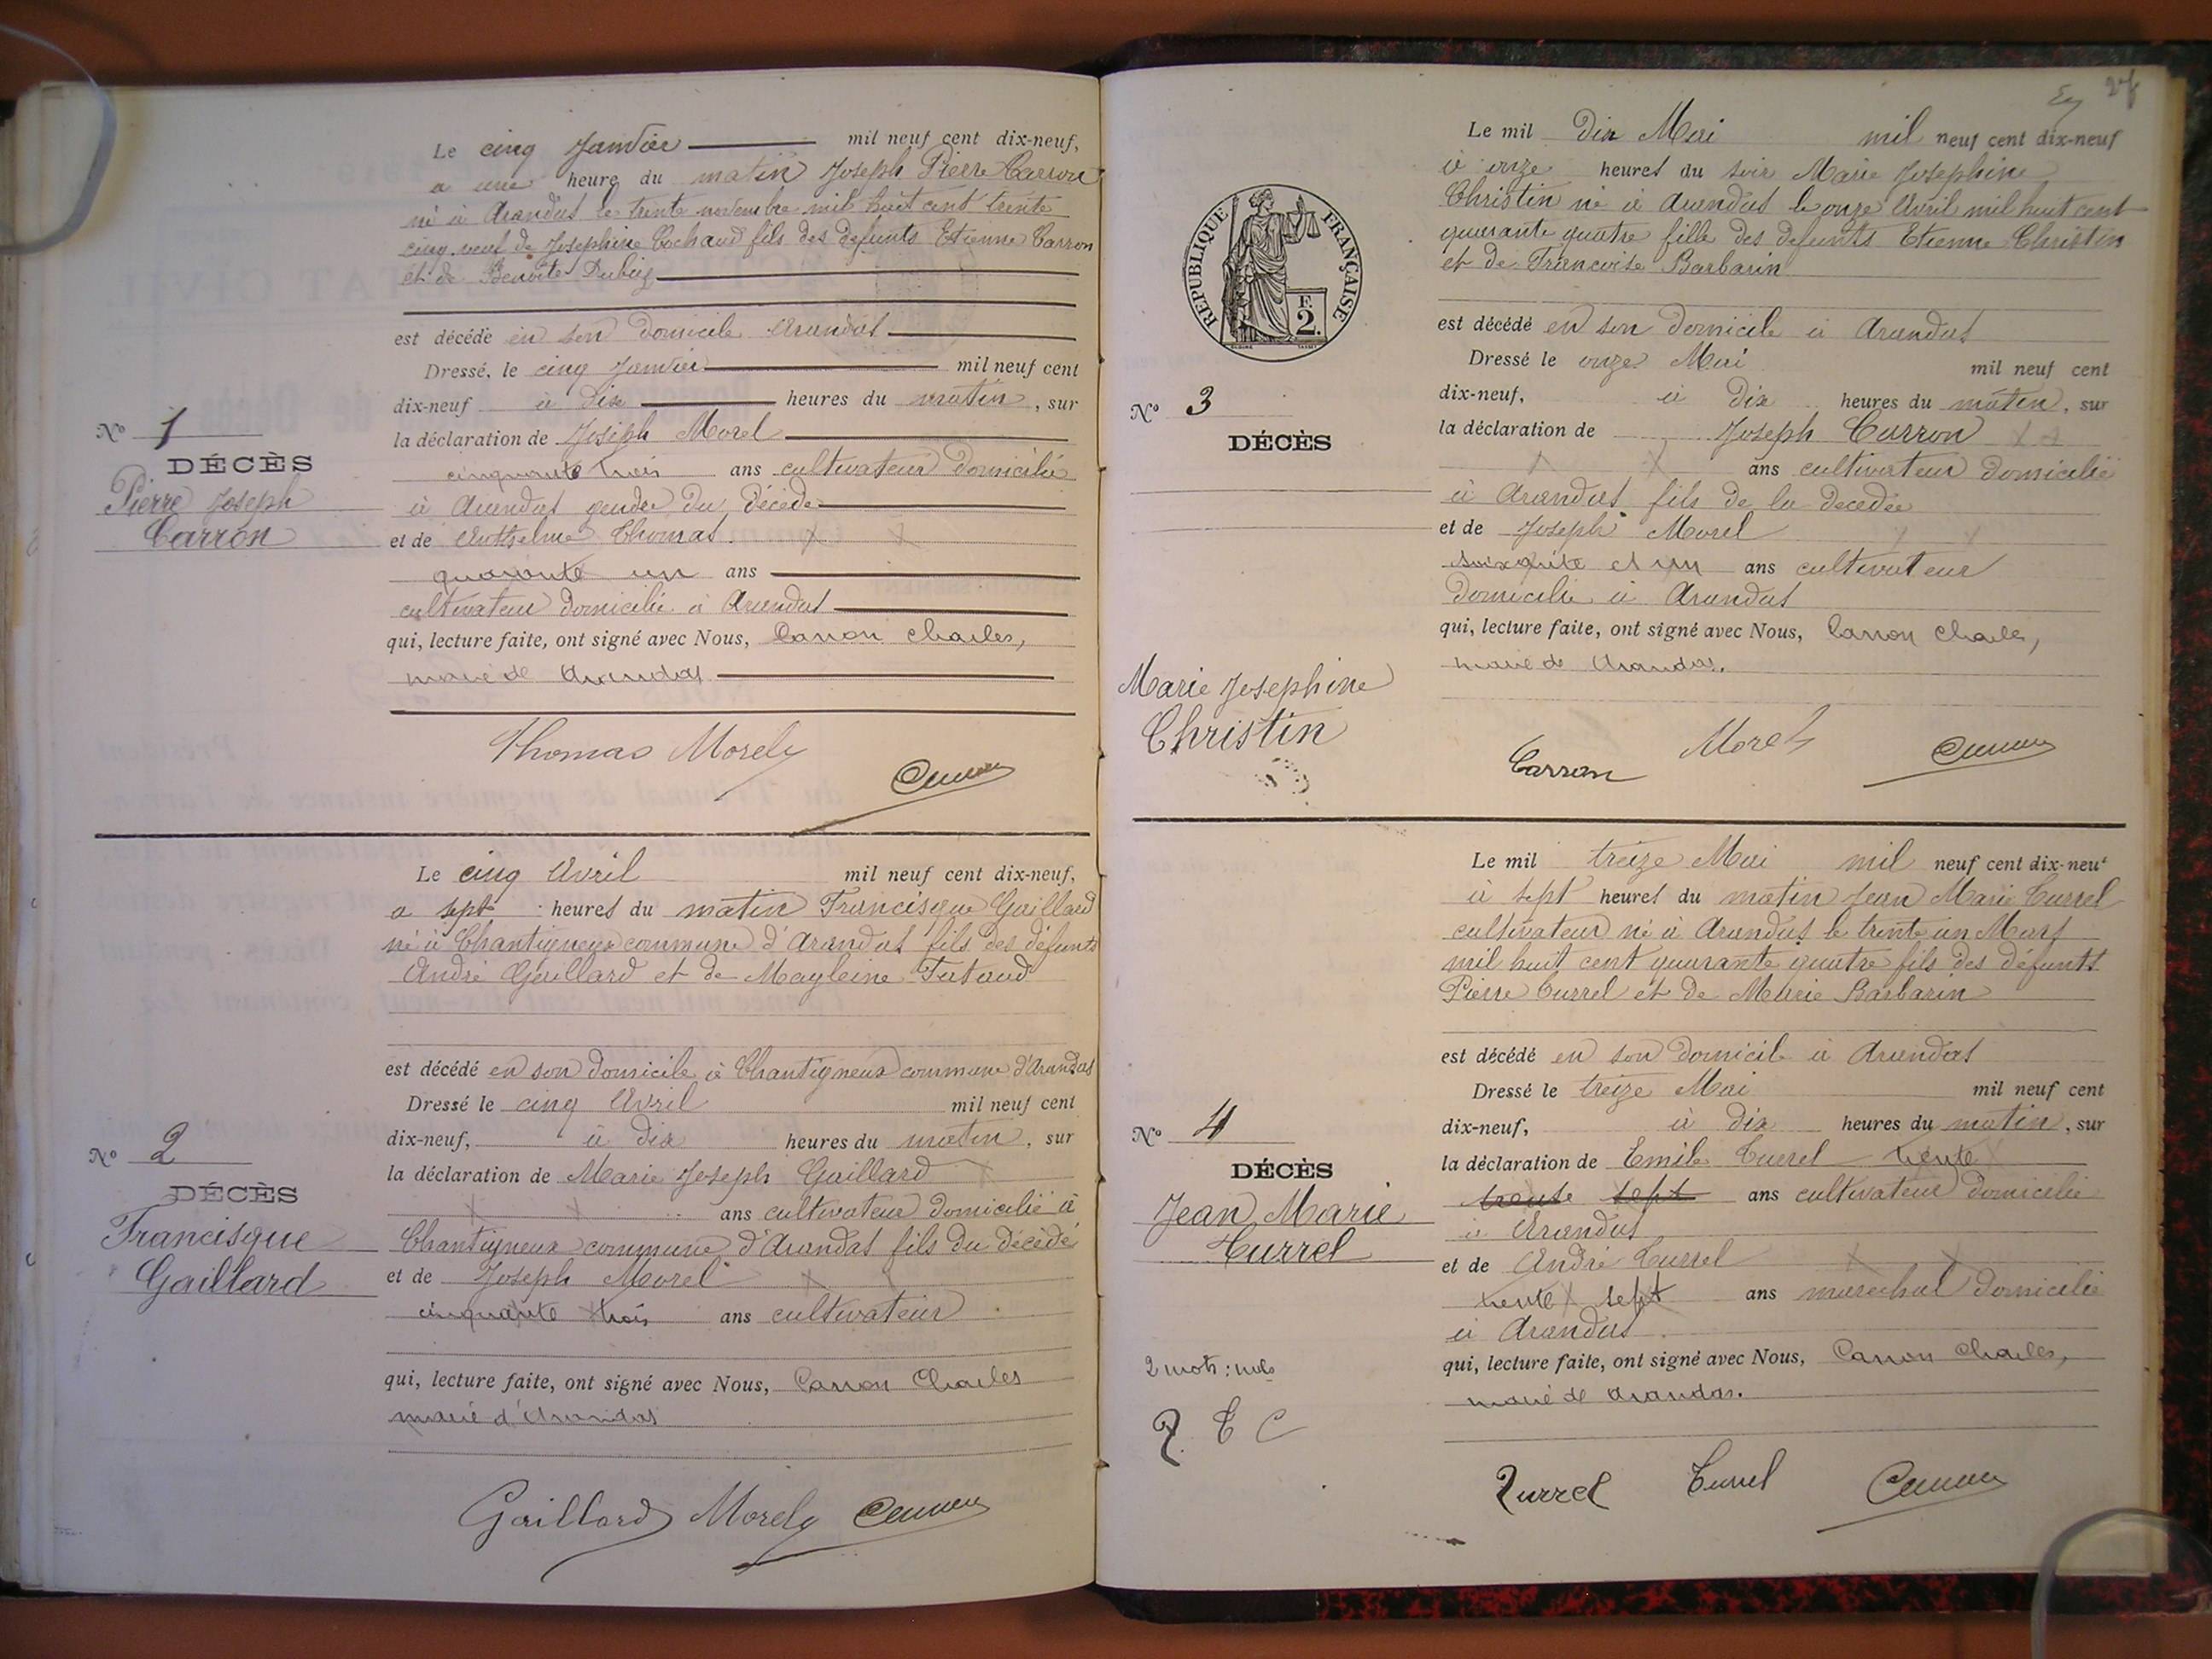 Le cinq Janvier mil neuf cent dix-neuf,
a une heure du matin Joseph Pierre Carron
né à Arandas le trente novembre mil huit cent trente
cinq veuf de Josephine Cochaud fils des defunts Etienne Carron
et de Benoite Dubiez
est décédé en son domicile Arandas
Dressé, le cinq Janvier mil neuf cent
dix-neuf à dix heures du matin, sur
la déclaration de Joseph Morel
cinquante trois ans cultivateur domicilié
à Arandas gendre du décédé
et de Anthelme Thomas
quarante un ans
cultivateur domicilié à Arandas
qui, lecture faite, ont signé avec Nous, Carron Charles,
maire de Arandas
Thomas Morel
Nº 1
DÉCÈS
Pierre Joseph
Carron
Le cinq Avril mil neuf cent dix-neuf,
a sept heures du matin Francisque Gaillard
né à Chantigneux commune d'Arandas fils des défunts
André Gaillard et de Mayleine
est décédé en son domicile à Chantigneux commune d'Arandas
Dressé le cinq Avril mil neuf cent
dix-neuf, à dix heures du matin, sur
la déclaration de Marie Joseph Gaillard
ans cultivateur domicilié à
Chantigneux commune d'Arandas fils du décédé
et de Joseph Morel
cinquante trois ans cultivateur
qui, lecture faite, ont signé avec Nous, Carron Charles
maire d'Arandas
Gaillard Morel
Nº 2
DÉCÈS
Francisque
Gaillard
27
Le mil dix Mai mil neuf cent dix-neuf
à onze heures du soir Marie Josephine
Christin né à Arandas le onze Avril mil huit cent
quarante quatre fille des defunts Etienne Christin
et de Francoise Barbarin
est décédé en son domicile à Arandas
Dressé le onze Mai mil neuf cent
dix-neuf, à dix heures du matin, sur
la déclaration de Joseph Carron
ans cultivateur domicilié
à Arandas fils de la decedée
et de Joseph Morel
soixante et un ans cultivateur
domicilié à Arandas
qui, lecture faite, ont signé avec Nous, Carron Charles,
maire de Arandas.
Carron Morel
REPUBLIQUE FRANÇAISE
F.
2.
Nº 3
DÉCÈS
Marie Josephine
Christin
Le mil treize Mai mil neuf cent dix-neuf
à sept heures du matin Jean Marie Turrel
cultivateur né à Arandas le trente un Mars
mil huit cent quarante quatre fils des défunts
Pierre Turrel et de Marie Barbarin
est décédé en son domicile à Arandas
Dressé le treize Mai mil neuf cent
dix-neuf, à dix heures du matin, sur
la déclaration de Emile Turrel trente
trente sept ans cultivateur domicilié
à Arandas
et de André Turrel
trente sept ans marechal domicilié
à Arandas
qui, lecture faite, ont signé avec Nous, Carron Charles,
maire de Arandas.
Turrel Turrel
Nº 4
DÉCÈS
Jean Marie
Turrel
2 mots: nuls
T C